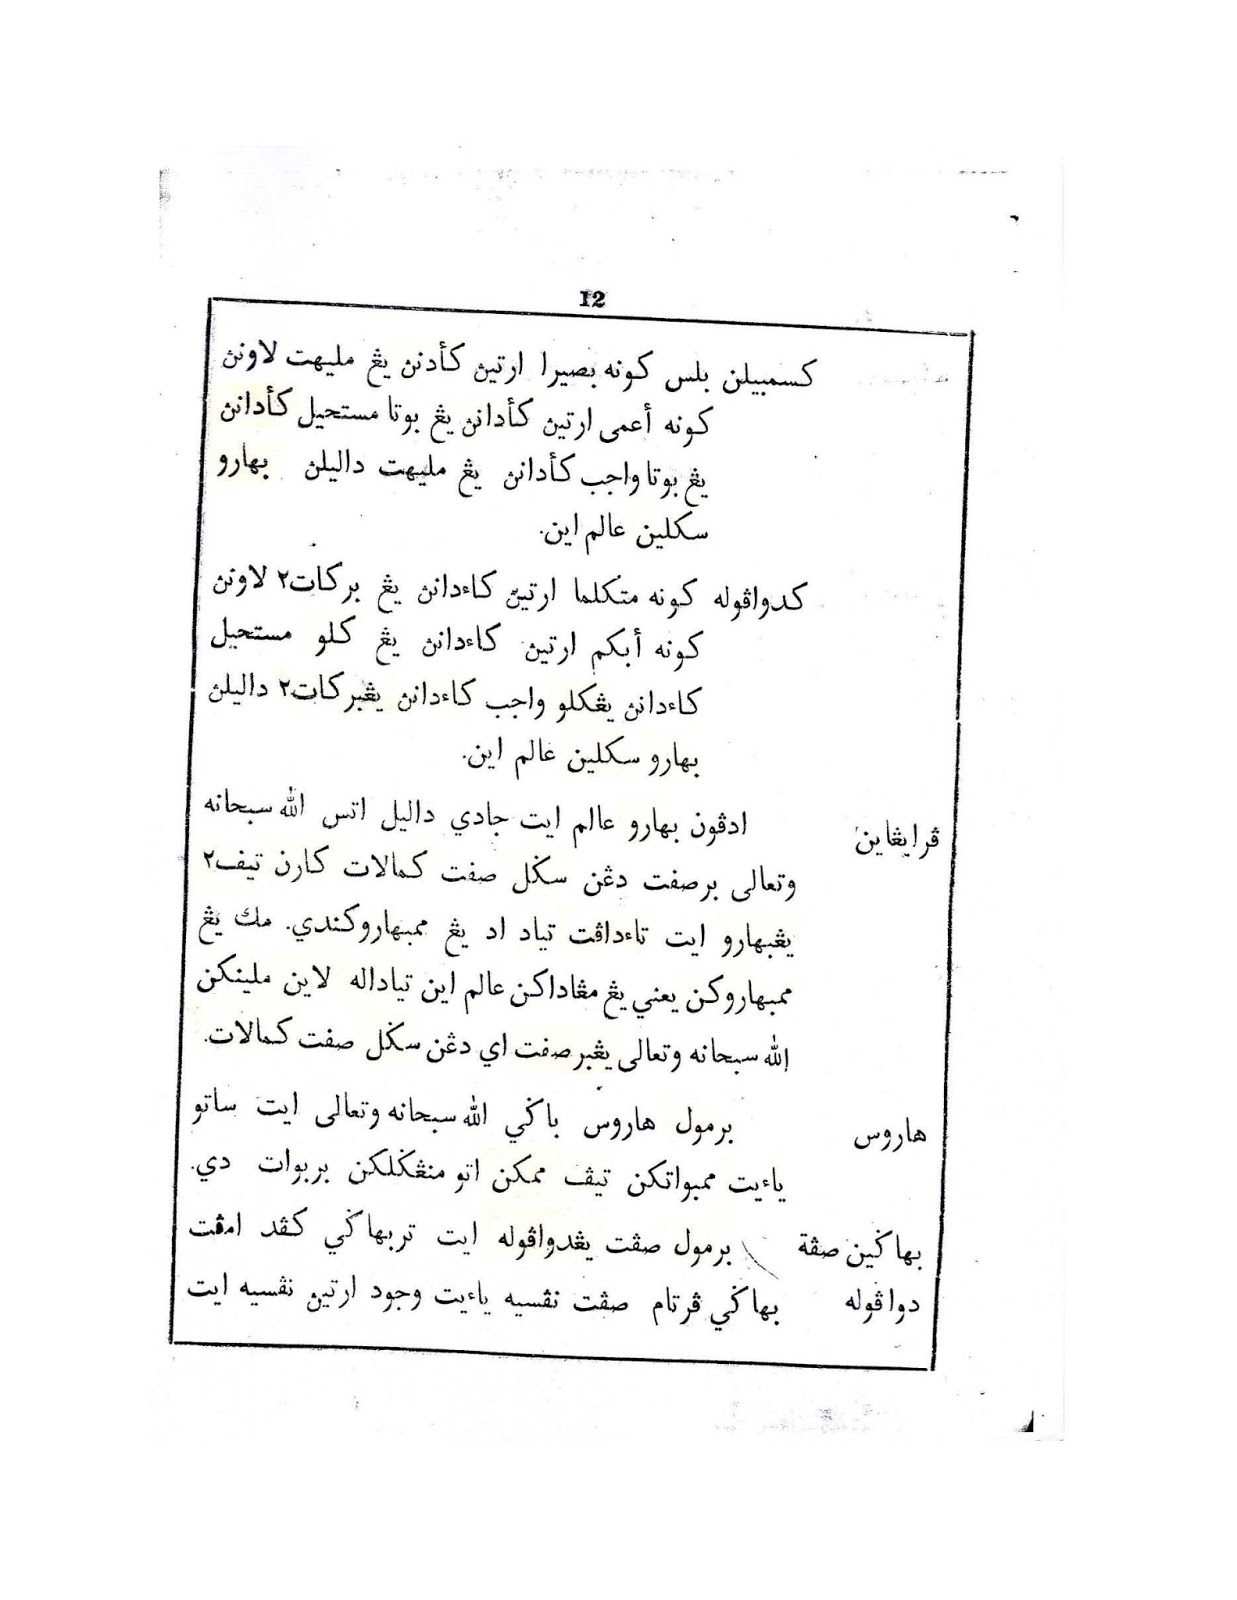 12
كسمبيلن بلس كونه بصيرا ارتين كأدنن يڠ مليهت لاونن
كونه أعمى ارتين كأدانن يڠ بوتا مستحيل كأدانن
يڠ بوتا واجب كأدانن يڠ مليهت داليلن بهارو
سكلين عالم اين.
كدواڤوله كونه متكلما ارتين كاءدانن يڠ بركات٢ لاونن
كونه أبكم ارتين كاءدانن يڠ كلو مستحيل
كاءدانن يڠكلو واجب كاءدانن يڠبركات٢ داليلن
بهارو سكلين عالم اين.
ڤرايڠاين ادڤون بهارو عالم ايت جادي داليل اتس الله سبحانه
وتعالى برصفت دڠن سݢل صفت كمالات كارن تيف٢
يڠبهارو ايت تاءداڤت تياد اد يڠ ممبهاروكندي. مك يڠ
ممبهاروكن يعني يڠ مڠاداكن عالم اين تياداله لاين ملينكن
الله سبحانه وتعالى يڠبرصفت اي دڠن سݢل صفت كمالات.
هاروس برمول هاروس باݢي الله سبحانه وتعالى ايت ساتو
ياءيت ممبواتكن تيڤ ممكن اتو منڠݢلكن بربوات دي.
بهاݢين صڤة برمول صڤت يڠدواڤوله ايت تربهاݢي كڤد امڤت
دواڤوله بهاݢي ڤرتام صڤت نڤسيه ياءيت وجود ارتين نڤسيه ايت